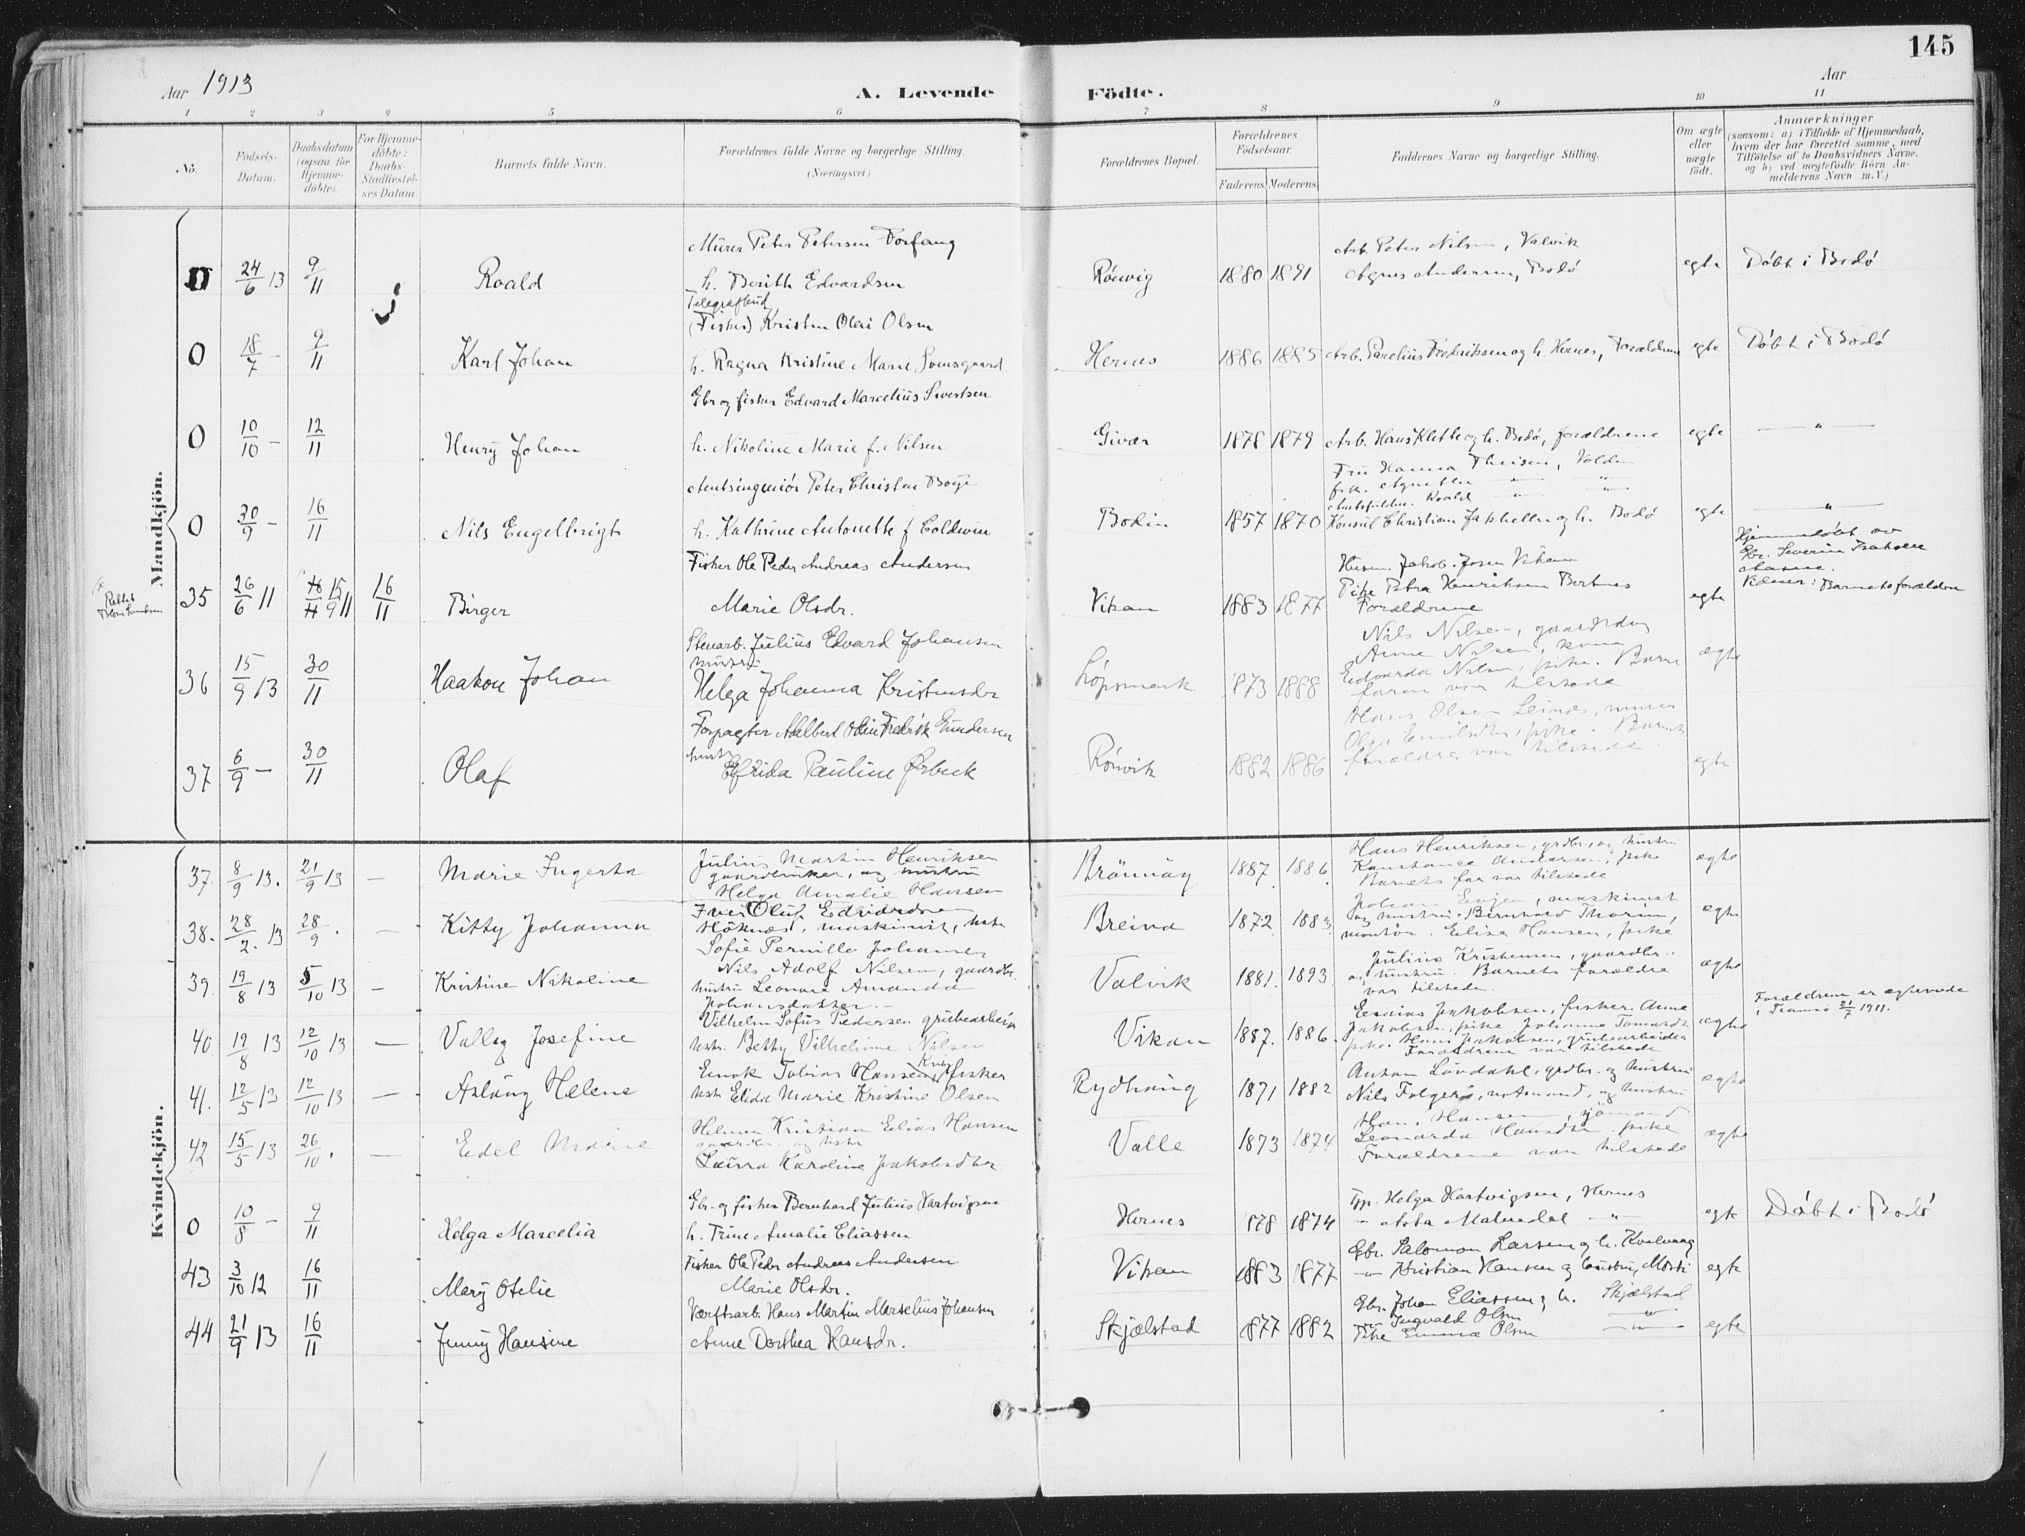 145
Aar 1913
A. Levende
Födte.
Aar
1 2 3 4 5 6 7 8 9 10 11
No.
Fødsels-Datum.
Daabsdatum (ogsaa for Hjemmedøbte).
For Hjemmedøbte: Daabs-Stadfæstelses Datum.
Barnets fulde Navn.
Forældrenes fulde Navne og borgerlige Stilling. (Næringsvei.)
Forældrenes Bopæl.
Forældrenes Fødselsaar.
Faderens. Moderens.
Faddernes Navne og borgerlige Stilling.
Om ægte eller uægte født.
Anmærkninger
(saasom: a) i Tilfælde af Hjemmedaab, hvem der har forrettet samme, med Tilføielse af to Daabsvidners Navne, og b) ved uegtefødte Børn Anmelderens Navn m.V.)
Mandkjön.
0 24/6 13 9/11 Roald
Murer Peter Petersen Forfang
h. Berith Edvardsen
Rönvig 1880 1891
Arb. Peter Nilsen, Valvik
Agnes Andersen, Bodø
egte Döbt i Bodø
0 18/7 - 9/11 Karl Johan
Telegrafbud
(Fisker) Kristen Olai Olsen
h. Ragna Kristine Marie
Hernes 1886 1885
Arb. Parelius Fredriksen og h. Hernes, Forældrene
egte Döbt i Bodø
0 10/10 - 12/11 Henry Johan
Gbr og fisker Edvard Marcelius Sivertsen
h. Nikoline Marie f. Nilsen
Givær 1878 1879
Arb. Hans Klette og h. Bodø, forældrene
egte — " —
0 30/9 - 16/11 Nils Engelbrigt
Amtsingeniör Peter Christian
h. Kathrine Antonette f. Coldevin
Bodin 1857 1870
Fru Hanna Theisen,
frk. Agnethe — " — "
Roald — " — "
Konsul Christian Jakhelln og h. Bodø
egte — " —
35 26/6 11 15/9 11 16/11 Birger
Fisker Ole Peder Andreas Andersen
Marie Olsdr.
Vikan 1883 1877
Husm. Jakob Josen Vikan
Pike Petra Henriksen Bertnes
Forældrene
egte
Hjemmedøbt av
Gbr. Severin
Vidner: Barnets forældre
36 15/9 13 30/11 Haakon Johan
Stenarb. Julius Edvard Johansen
hustru
Helga Johanna Kristensdr
Löpsmark 1873 1888
Nils Nilsen,
Anne Nilsen, kone
Edvarda Nilsen, pike. Barnets
faren var tilstede
ægte
37 6/9 - 30/11 Olaf
Forpagter Adelbert Odin Fredrik Gundersen
hustr
Elfrida Pauline Ørbeck
Rönvik 1882 1886
Hans Olsen Leines, murer
Olga pike. Barnets
forældre var tilstede.
egte
Kvindekjön.
37. 8/9 13. 21/9 13 — Marie Ingerta
Julius Martin Henriksen
gaardbruker, og hustru
Helga Amalie Hansen
1887. 1886.
Hans Henriksen, grdbr., og hustru
Konstance Andersen, pike
Barnets far var tilstede
ægte
38. 28/2. 13 28/9. — Kitty Johanna
Oluf Edvardsen
Höknes, maskinist, hstr
Sofie Pernille Johansen
Breiva 1872. 1883.
Johan maskinist
og hustru. Bernhard Thorin,
montör. Elise Hansen, pike
ægte
39. 19/8 13 5/10 13 — Kristine Nikoline
Nils Adolf Nilsen, gaardbr.
hustru Leonore Amanda
Johansdatter. —
Valvik 1881. 1893.
Julius Kristensen, gaardbr.
og hustru. Barnets forældre
var tilstede.
ægte
40. 19/8 13 12/10 13 — Valleg Josefine
Vilhelm Sofus Pedersen grubearbeider
hstr. Betty Vilhelmine Nilsen
Vikan 1887. 1886.
Esaias Jakobsen, fisker. Anne
Jakobsen, pike. Johanne
pike. Hans Jakobsen, grubearbeider
Forældrene var tilstede
ægte
Forældrene er ægteviede
i Tromsö 21/5 1911.
41. 12/5 13 12/10 13 — Aslaug Helene
Enok Tobias Hansen fisker
hstr Elida Marie Kristine Olsen
Rydhaug 1871 1882
Anton Lövdahl, grdbr. og hustru
Nils Folgerø, notmand, og hustru
ægte
42 15/5 13 26/10. — Edel Marie
Helmer Kristian Edias Hansen
gaardbr. og hstr
Laura Karoline Jakobsdtr
Valle 1873 1874
Hans Hansen, sjömand
Leonarda Hansdtr. pike
Forældrene var tilstede
ægte
0 10/8 - 9/11 Helga Marcelia
Gbr. og fisker Bernhard Julius Hartvigsen
h. Trine Amalie Eliassen
Hernes 1878 1874
Helga Hartvigsen, Hernes
— Asta — " —
egte Döbt i Bodø
43 3/10 12 16/11 Mary Otelie
Fisker Ole Peder Andreas Andersen
Marie Olsdr.
Vikan 1883 1877
Gbr. Salomon Larsen og h.
— " — Kristian Hansen og hustru,
egte
44 21/9 13 16/11 Jenny Hansine
Værftsarb. Hans Martin Marselius Johansen
Anne Dorthea Hansdr.
Skjælstad 1877 1882
Gbr. Johan Eliassen og h. Skjælstad
— " — Ingvald Olsen — " —
Pike Emma Olsen — " —
egte